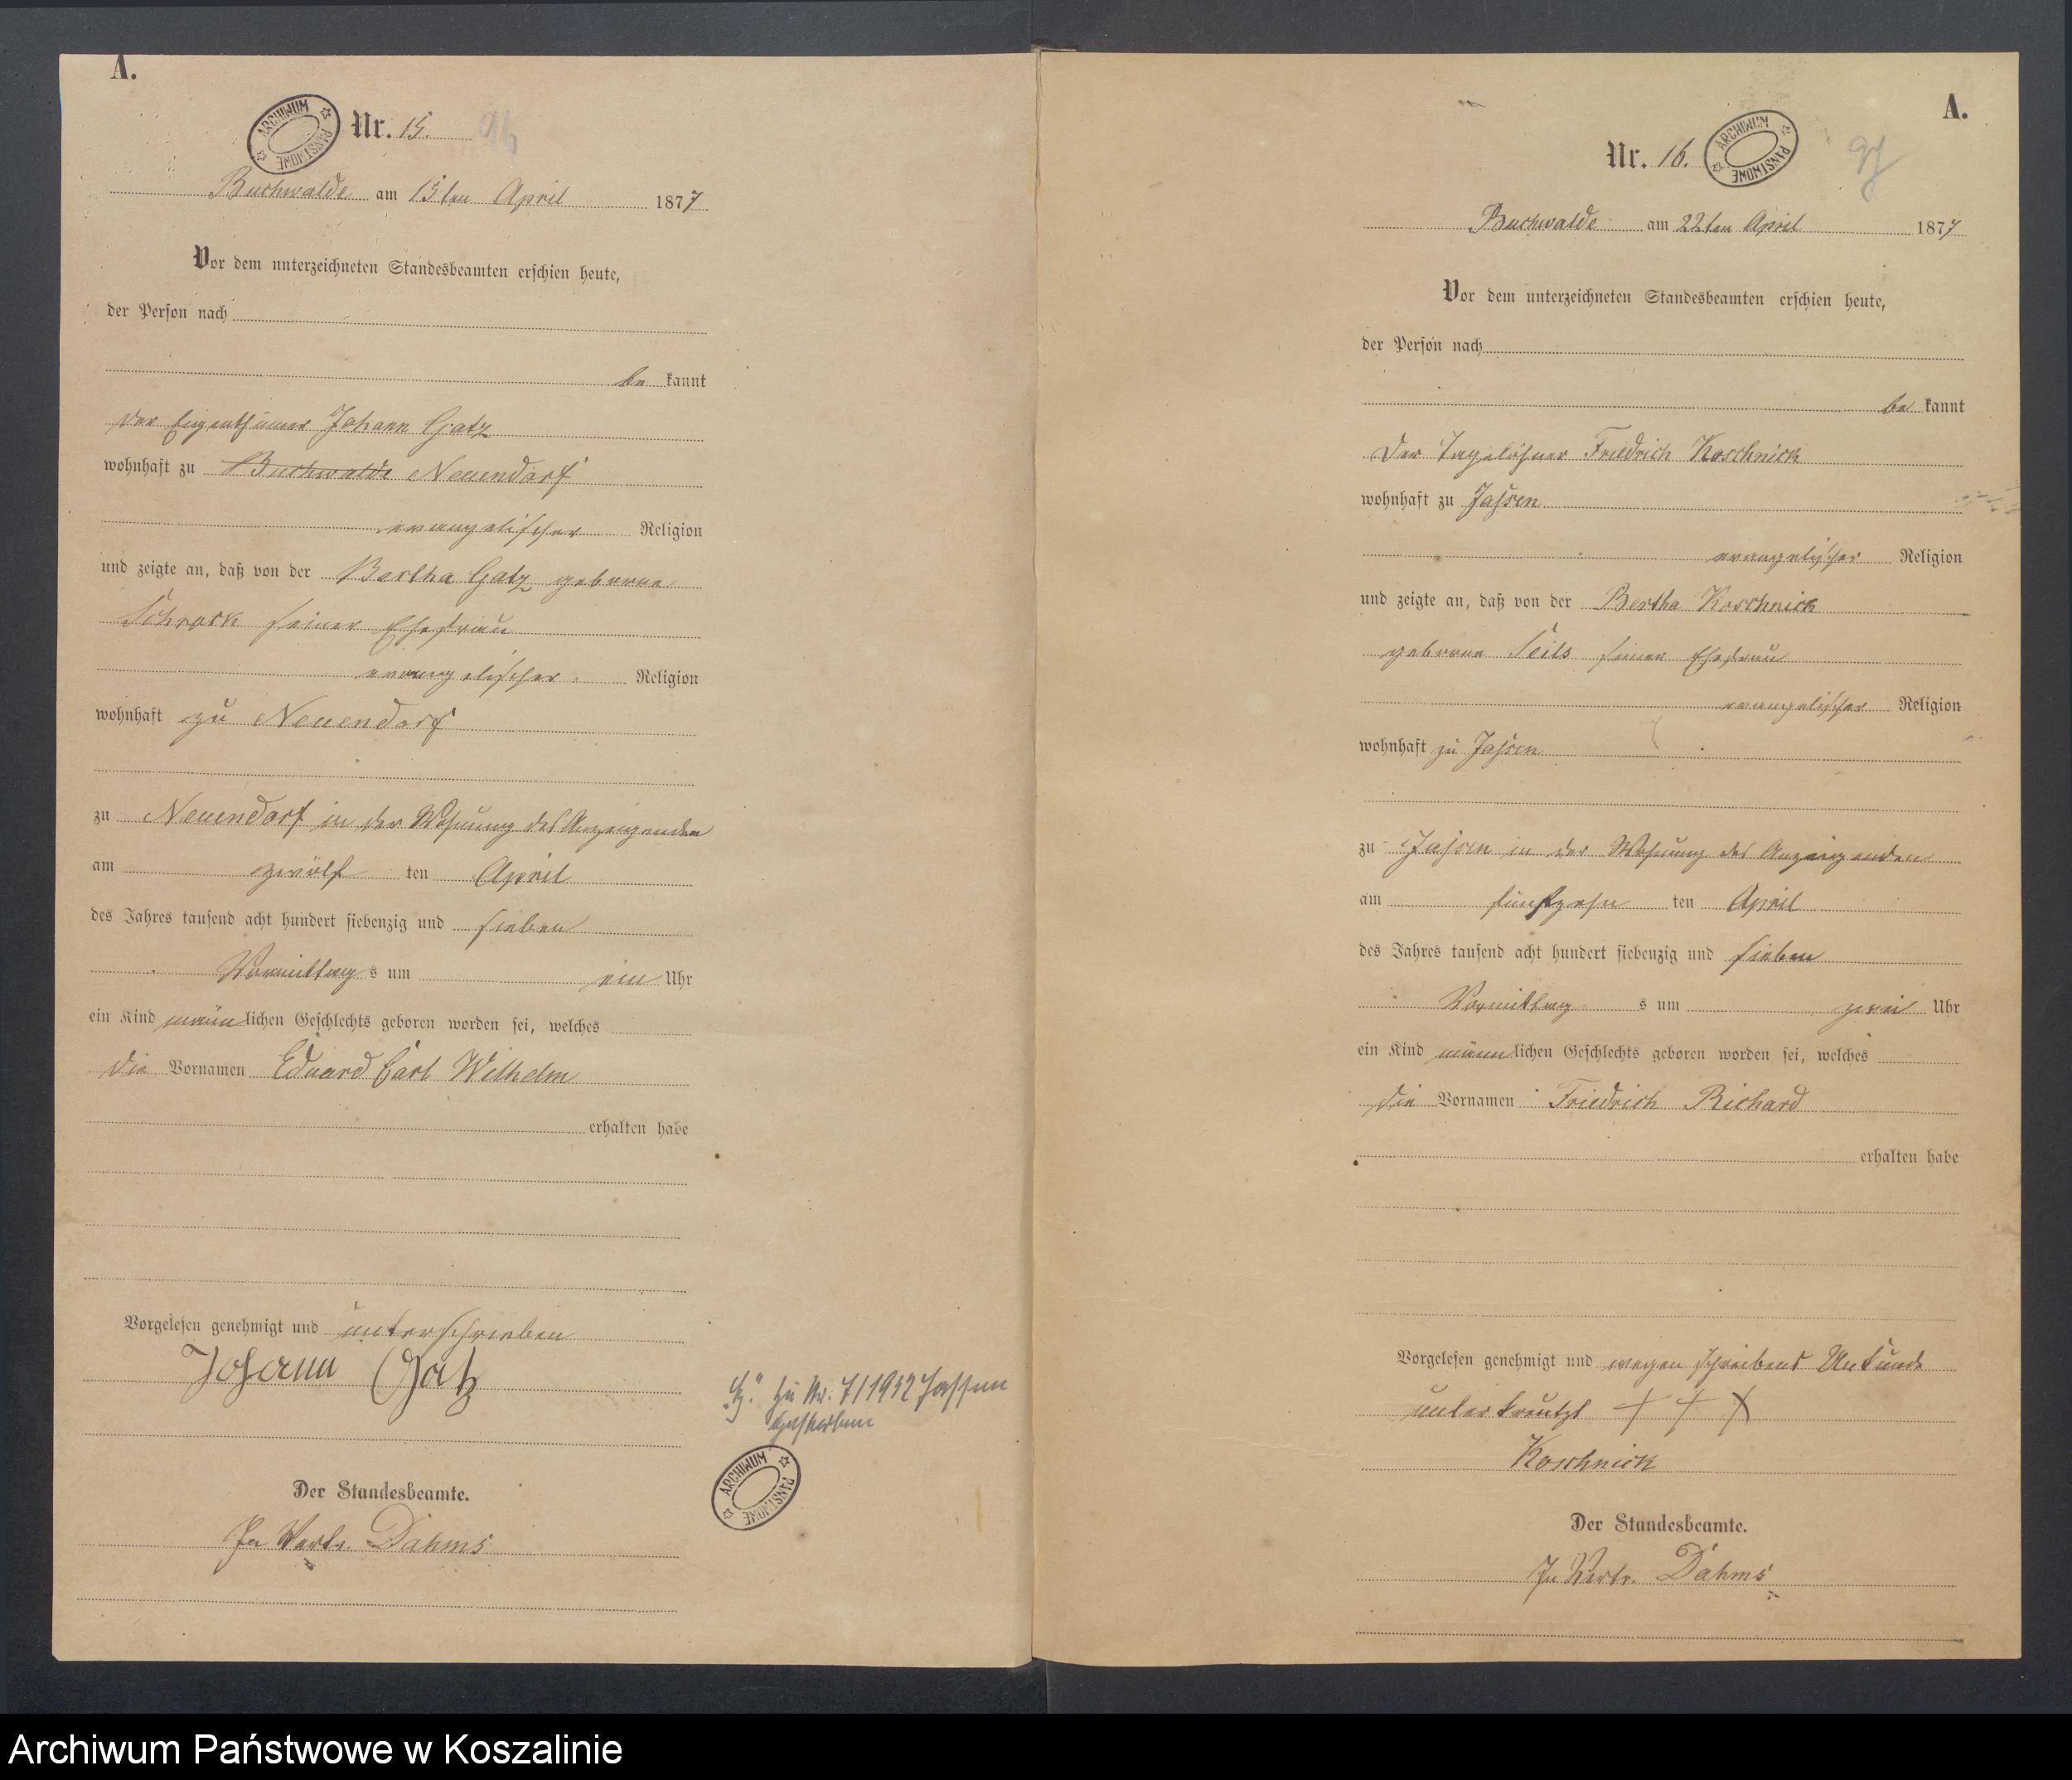 A.
ARCHIWUM PAŃSTWOWE
Nr. 15.
Buchwalde am 15ten April 1877
Vor dem unterzeichneten Standesbeamten erschien heute,
der Person nach
be kannt
der Eigenthümer Johann Gatz
wohnhaft zu Buchwalde Neuendorf
evangelischer Religion
und zeigte an, daß von der Bertha Gatz geborne
Schrock seiner Ehefrau
evangelischer Religion
wohnhaft zu Neuendorf
zu Neuendorf in der Wohnung des Anzeigenden
am zwölf ten April
des Jahres tausend acht hundert siebenzig und sieben
Vormittag s um ein Uhr
ein Kind männlichen Geschlechts geboren worden sei, welches
die Vornamen Eduard Carl Wilhelm
erhalten habe
Vorgelesen genehmigt und unterschrieben
Johann Gatz
zu Nr. 7/1952 Jassen
gestorben
ARCHIWUM PAŃSTWOWE
Der Standesbeamte.
In Vertr. Dahms
A.
Nr. 16.
ARCHIWUM PAŃSTWOWE
97
Buchwalde am 22ten April 1877
Vor dem unterzeichneten Standesbeamten erschien heute,
der Person nach
be kannt
der Tagelöhner Friedrich Koschnick
wohnhaft zu Jassen
evangelischer Religion
und zeigte an, daß von der Bertha Koschnick
geborne Seils seiner Ehefrau
evangelischer Religion
wohnhaft zu Jassen
zu Jassen in der Wohnung des Anzeigenden
am fünfzehn ten April
des Jahres tausend acht hundert siebenzig und sieben
Vormittag s um zwei Uhr
ein Kind männlichen Geschlechts geboren worden sei, welches
die Vornamen Friedrich Richard
erhalten habe
Vorgelesen genehmigt und wegen Schreibens Unkunde
unterkreutzt + + +
Koschnick
Der Standesbeamte.
In Vertr. Dahms
Archiwum Państwowe w Koszalinie